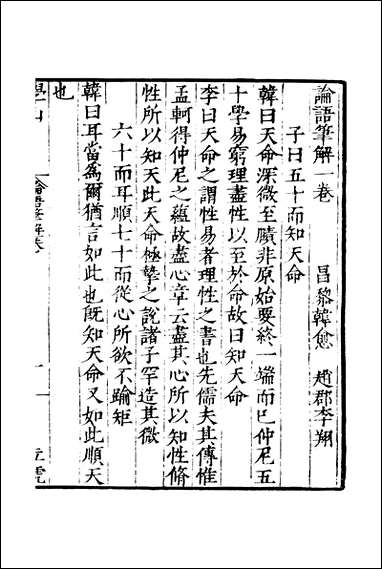 論語筆解一卷
昌黎韓愈　趙郡李翔
子曰五十而知天命
韓曰天命深微至賾非原始要終一端而已仲尼五
十學易窮理盡性以至於命故曰知天命
李曰天命之謂性易者理性之書也先儒失其傳惟
孟軻得仲尼之蘊故盡心章云盡其心所以知性脩
性所以知天此天命極摯之說諸子罕造其微
六十而耳順七十而從心所欲不踰矩
韓曰耳當為爾猶言如此也旣知天命又如此順天
也
論語筆解卷